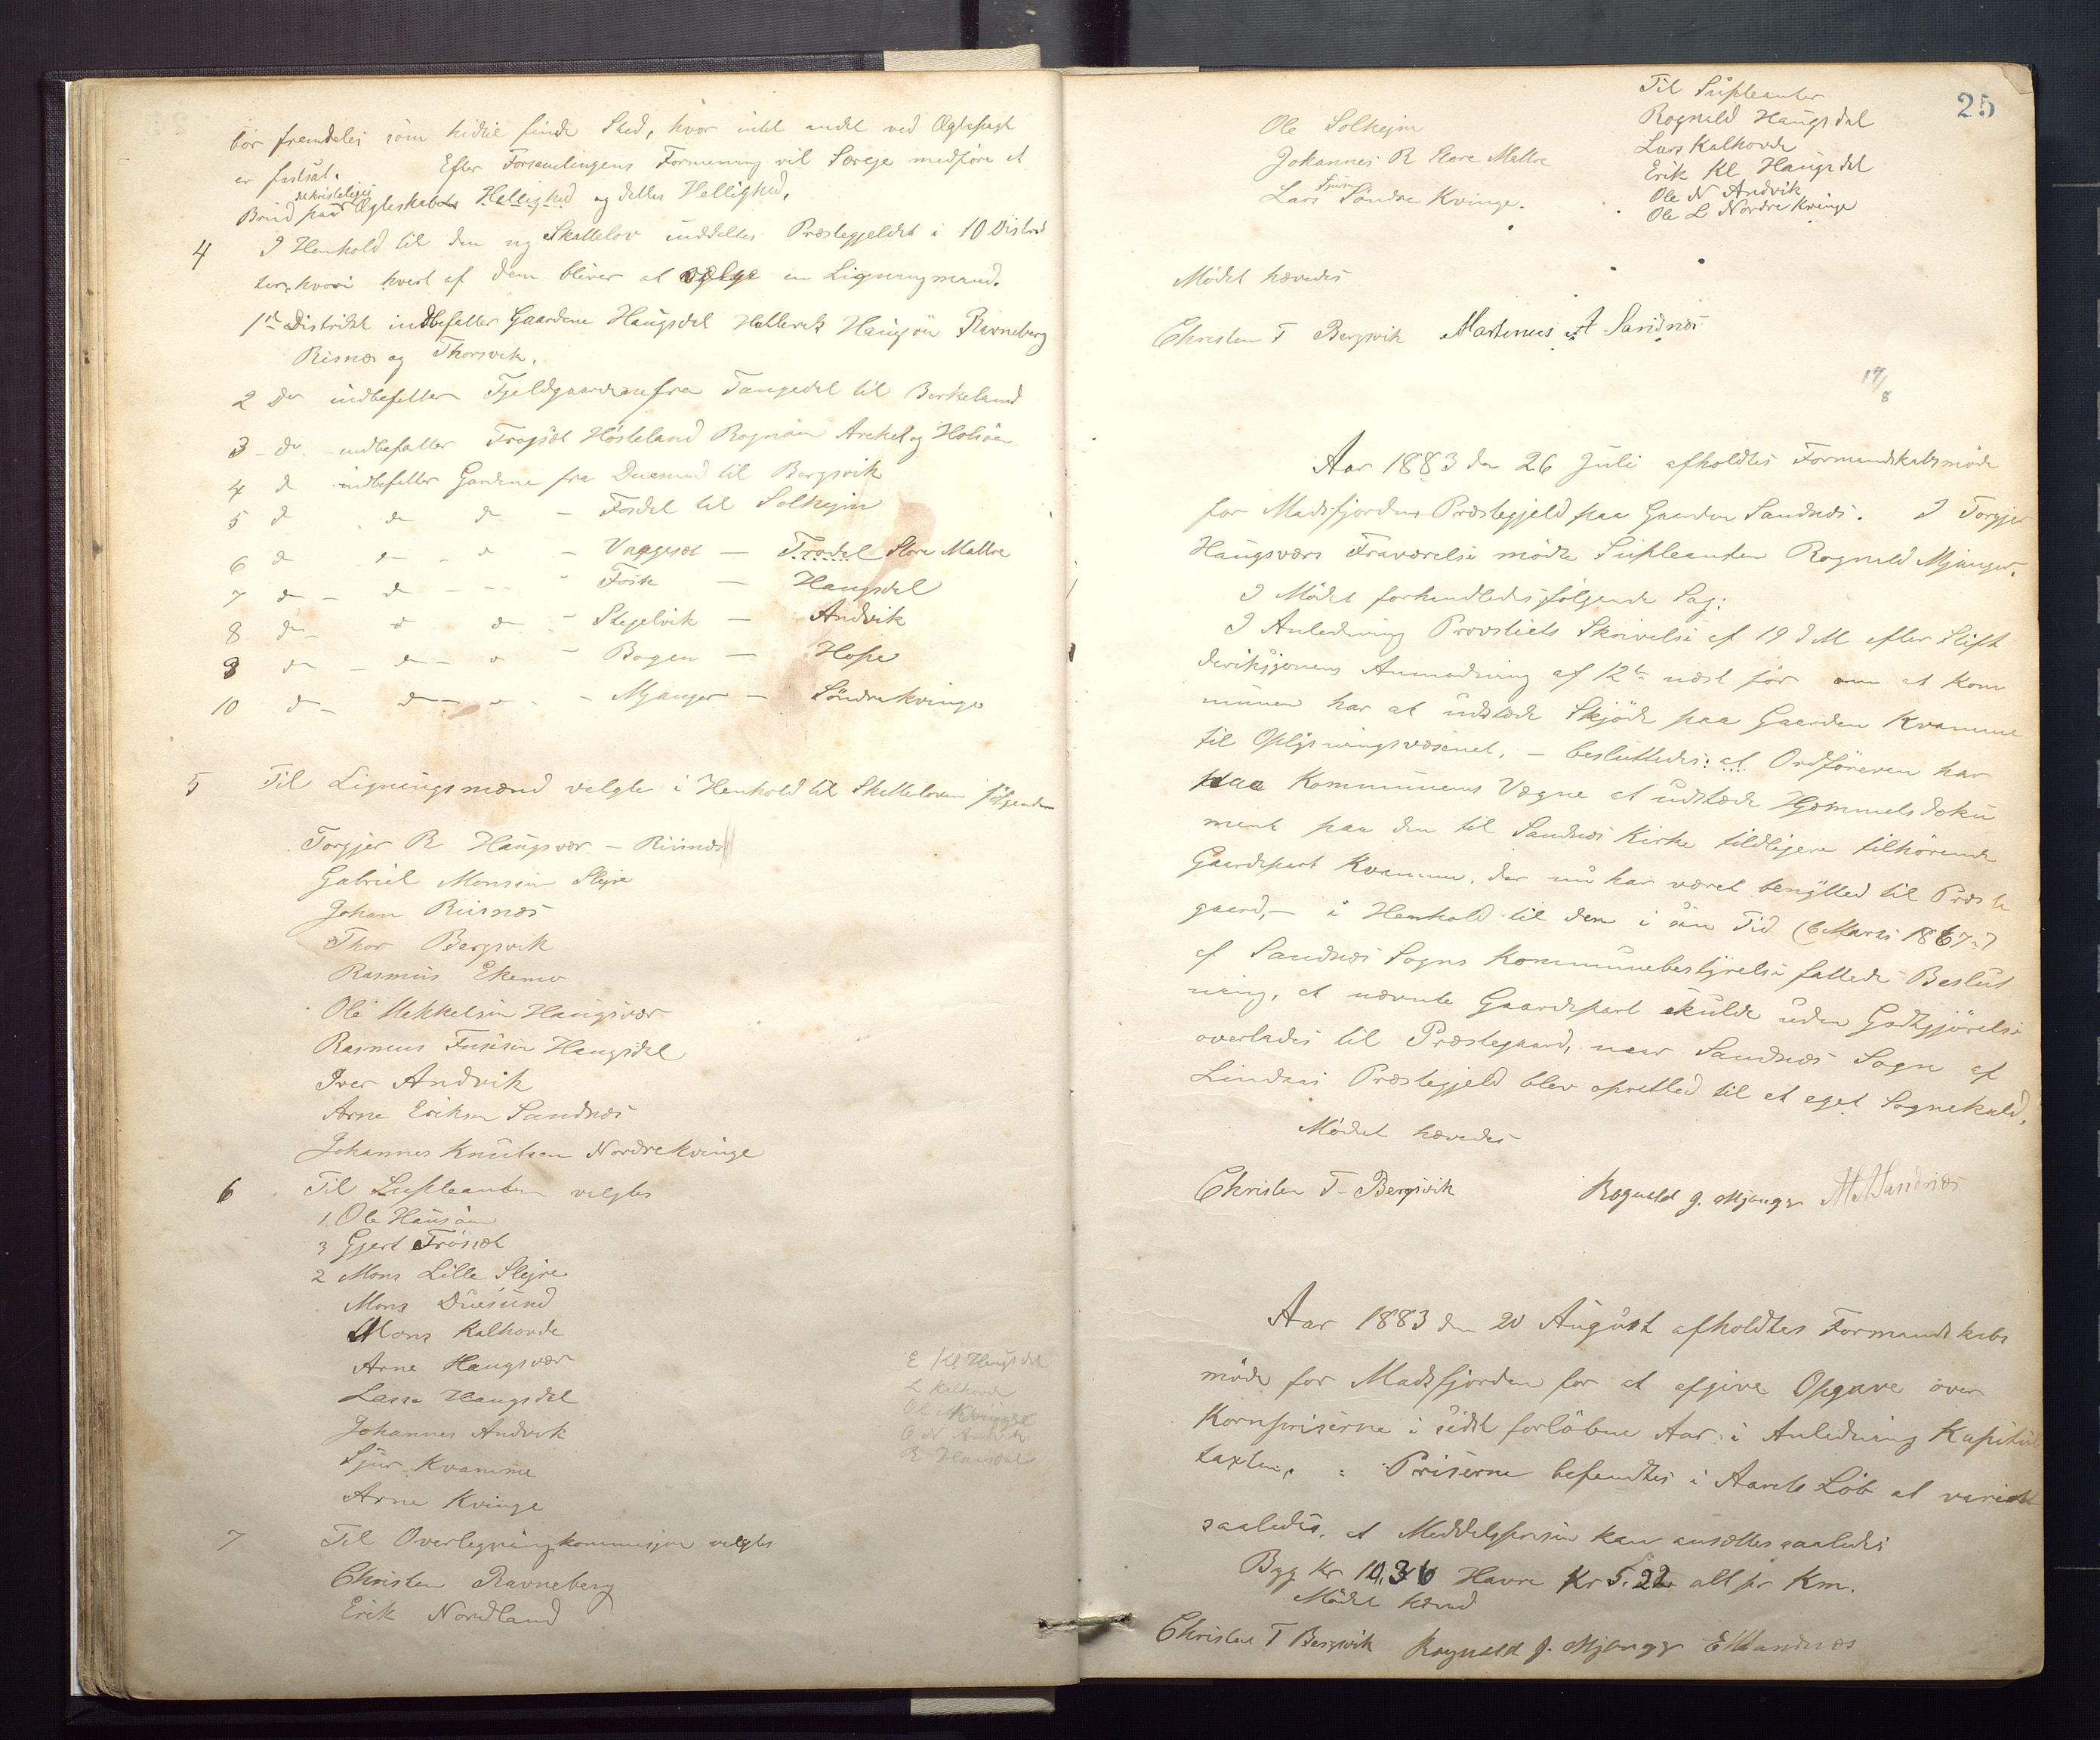 bør fremdeles som hidtil finde Sted, hvor intet andet ved Ægtepagt
er fastsat. Efter Forsamlingens Formening vil Særeje medføre et
Brud paa det kristelige Ægteskabets Hellighed og dettes Hellighed.
4 I Henhold til den ny Skattelov inddeltes Præstegjeldet i 10 Distrik
ter, hvori hvert af dem bliver at vælge en Ligningsmand.
1ste Distrikt indbefatter Gaardene Haugsdal Hatlevik Haugsøn Ravneberg
Risnæs og Thorsvik.
2 do indbefatter Fjeldgaardene fra Tangedal til Birkeland
3 - do - indbefatter Frøyset Høsteland Rognøen Arekol og Holsøen
4 d indbefatter Gardene fra Duesund til Bergsvik
5 d do do - Fosdal til Solhejm
6 d d - d - Unggesæt - Trædal Store Mattre
7 d - d - - - Foss - Haugsdal
8 do d do - Stegelvik - Andvik
9 do - d - d - Bogen - Hope
10 d - d - d - - Mjanger - Søndre Kvinge
5 Til Ligningsmænd valgte i Henhold til Skatteloven følgende
Torgjer R Haugsvær - Riisnæs
Gabriel Monsen Slejre
Johan Riisnæs
Thor Bergsvik
Rasmus Ekemo
Ole Mikkelsen Haugsvær
Rasmus Fusesen Haugsdal
Iver Andvik
Arne Eriksen Sandnæs
Johannes Knutsen Nordre Kvinge
6 Til Supleanter valgtes
1. Ole Hausøen
3 Gjert Frøiset
2 Mons Lille Slejre
Mons Duesund
Mons Kalhovde
Arne Haugsvær
Lasse Haugsdal
Johannes Andvik
Sjur Kvamme
Arne Kvinge
E Kl Haugsdal
L Kalhovde
Ol Kvinge
O N Andvik
R Haugsdal
7 Til Overligningskommisjon valgtes
Christen Ravneberg
Erik Nordland
25
Ole Solhejm
Johannes R Store Mattre
Lars Sjursen Søndre Kvinge.
Til Supleanter
Rognald Haugsdal
Lars Kalhovde
Erik Kl Haugsdal
Ole N Andvik
Ole L Nordre Kvinge
Mødet hævedes
Christen T Bergsvik Martinus A Sandnæs
17/8
Aar 1883 den 26 Juli afholdtes Formandskabsmøde
for Madsfjordens Præstegjeld paa Gaarden Sandnæs. I Torgjer
Haugsværs Fraværelse mødte Supleanten Rognald Mjanger.
I Mødet forhandledes følgende Sag:
I Anledning Provstiets Skrivelse af 19 d M efter Stift
direktionens Anmodning af 12te næst før om at Kom
munen har at udstæde Skjøde paa Gaarden Kvamme
til Oplysningsvæsenet, - besluttedes: at Ordføreren har
paa Kommunens Vægne at udstæde Hjemmelsdoku
ment paa den til Sandnæs Kirke tidligere tilhørende
Gaardepart Kvamme, der nu har været benyttet til Præste
gaard, - i Henhold til den i sin Tid (6 Marts 1867?)
af Sandnæs Sogns Kommunebestyrelse fattede Beslut
ning, at nævnte Gaardepart skulde uden Godtgjørelse
overlades til Præstegaard, naar Sandnæs Sogn af
Lindaas Præstegjeld blev oprettet til et eget Sognekald.
Mødet hævedes
Christen T- Bergsvik Rognald J. Mjanger M A Sandnæs
Aar 1883 den 20 August afholdtes Formandskabs
møde for Madsfjorden for at afgive Opgave over
Kornpriserne i sidst forløbne Aar i Anledning Kapitel
taxten. Priserne befandtes i Aarets Løb at variere
saaledes, at Middelprisen kan ansættes saaledes
Byg Kr 10,36 Havre Kr 5.22 alt pr Km.
Mødet hævet
Christen T Bergsvik Rognald J. Mjanger E M Sandnæs